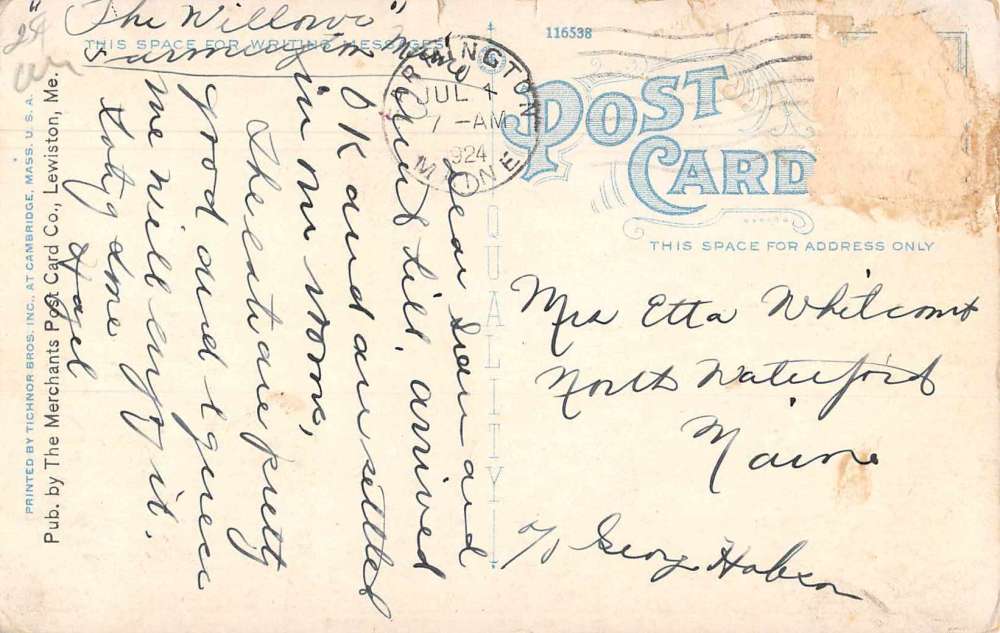 "The Willows"
Farmington Maine
THIS SPACE FOR WRITING MESSAGES
Dear Gram and
Aunt Lill, arrived
O K and are settled
in our rooms,
The eats are pretty
good and I guess
we will enjoy it.
Hazel
PRINTED BY TICHNOR BROS. INC., AT CAMBRIDGE, MASS. U. S. A.
Pub. by The Merchants Post Card Co., Lewiston, Me.
QUALITY
FARMINGTON
JUL 1
7 -AM
1924
MAINE
116538
POST
CARD
THIS SPACE FOR ADDRESS ONLY
Mrs Etta Whitcomb
North Waterford
Maine
c/o George Hobson